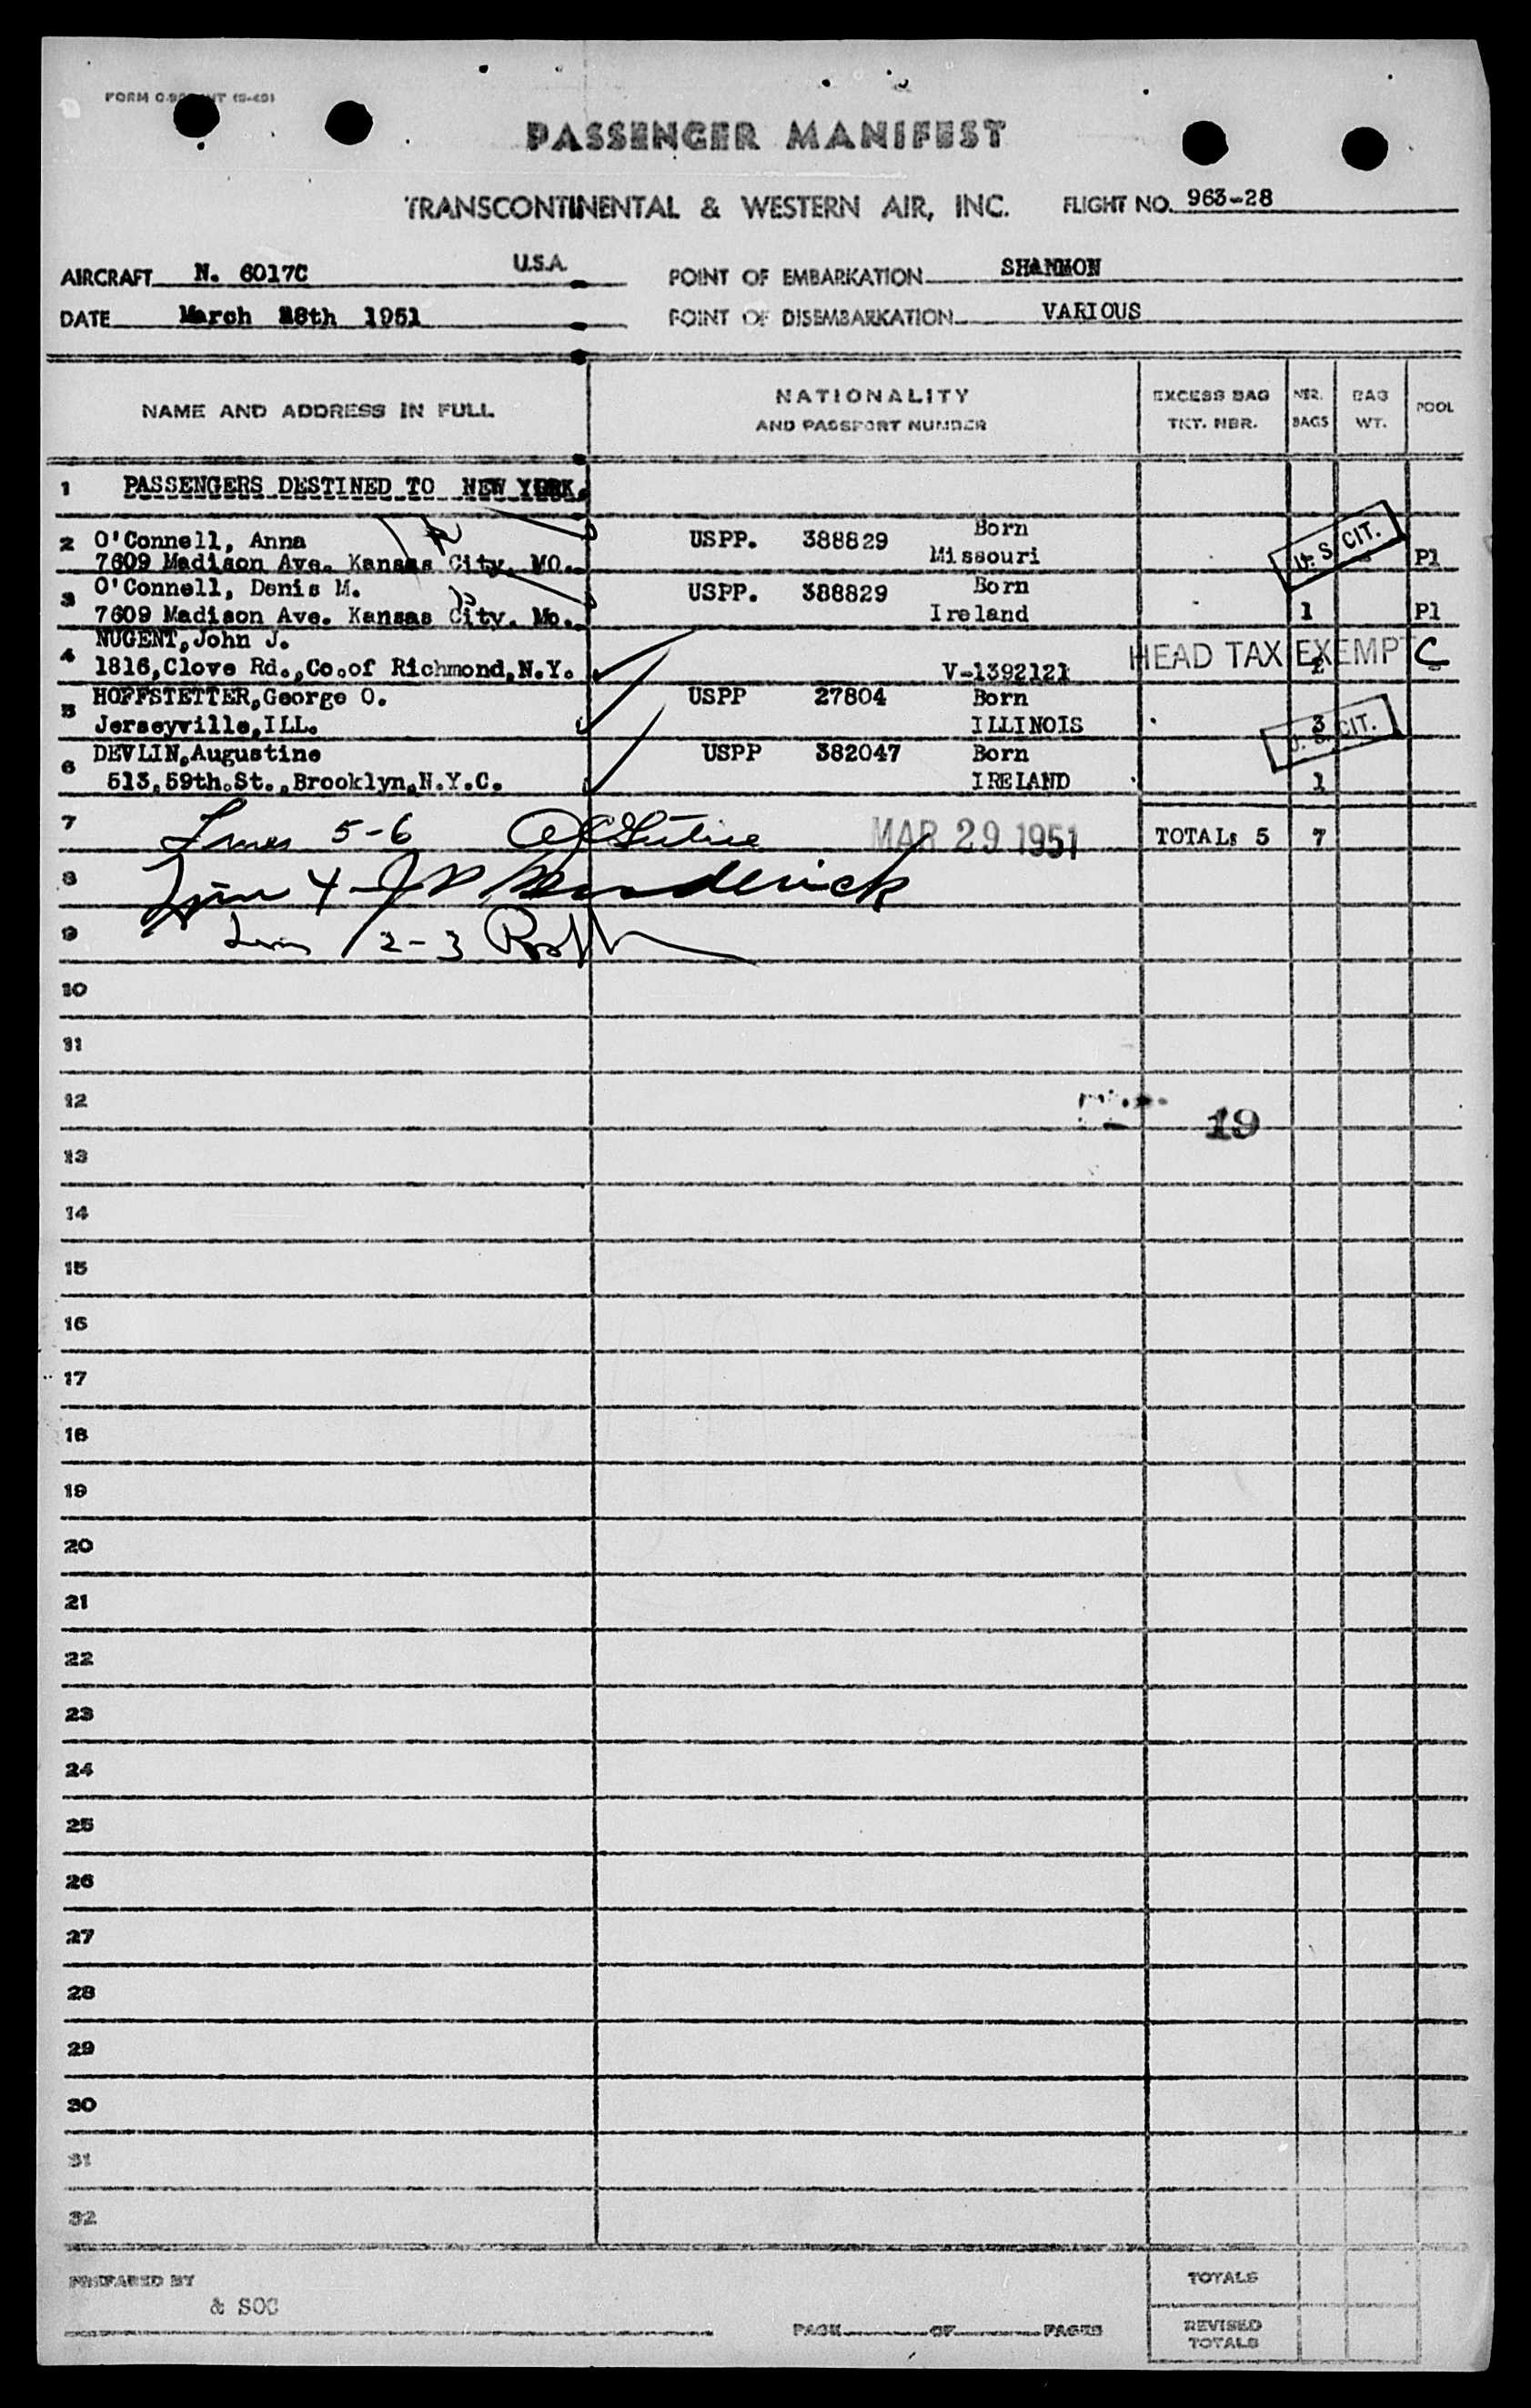 PASSENGER MANIFEST
TRANSCONTINENTAL & WESTERN AIR, INC. FLIGHT NO. 963-28
AIRCRAFT N. 6017C U.S.A. POINT OF EMBARKATION SHANNON
DATE March 28th 1951 POINT OF DISEMBARKATION VARIOUS
NAME AND ADDRESS IN FULL NATIONALITY AND PASSPORT NUMBER EXCESS BAG TKT. NBR. NBR. BAGS BAG WT. POOL
1 PASSENGERS DESTINED TO NEW YORK.
2 O'Connell, Anna USPP. 388829 Born U. S. CIT.
7609 Madison Ave. Kansas City, MO. Missouri Pl
3 O'Connell, Denis M. USPP. 388829 Born
7609 Madison Ave. Kansas City. Mo. Ireland 1 Pl
4 NUGENT,John J. HEAD TAX EXEMPT C
1816,Clove Rd.,Co.of Richmond,N.Y. V-1392121 2
5 HOFFSTETTER,George O. USPP 27804 Born
Jerseyville,ILL. ILLINOIS 3 U. S. CIT.
6 DEVLIN,Augustine USPP 382047 Born
513,59th.St.,Brooklyn,N.Y.C. IRELAND 1
7 Lines 5-6 MAR 29 1951 TOTAL: 5 7
8 Line 4
9 Lines 2-3
10
11
12
19
13
14
15
16
17
18
19
20
21
22
23
24
25
26
27
28
29
30
31
32
PREPARED BY TOTALS
& SOC
PAGE OF PAGES REVISED TOTALS